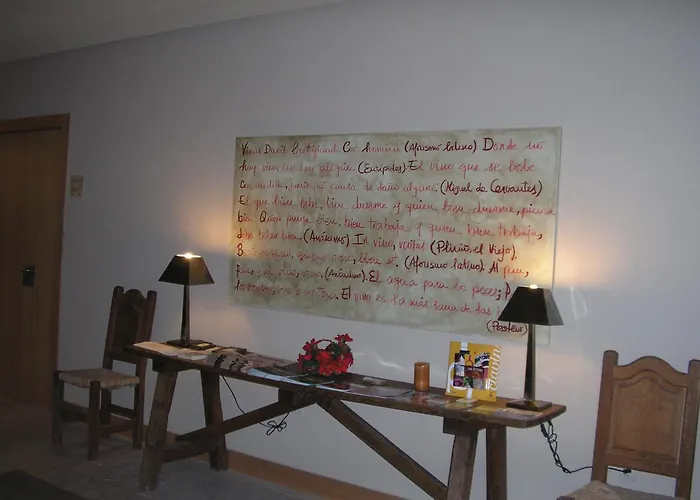 Donde no
hay vino no hay alegría. (Eurípides). El vino que se bebe
con medida, jamás fue causa de daño alguno. (Miguel de Cervantes)
El que bien bebe, bien duerme y quien bien duerme, piensa
bien. Quien piensa bien, bien trabaja y quien bien trabaja,
debe beber bien. (Anónimo). In vino, veritas (Plinio, el Viejo).
(Aforismo latino). Al pan,
pan, y al vino, vino. (Anónimo). El agua para los peces;
El vino es la más sana de las
(Pasteur)